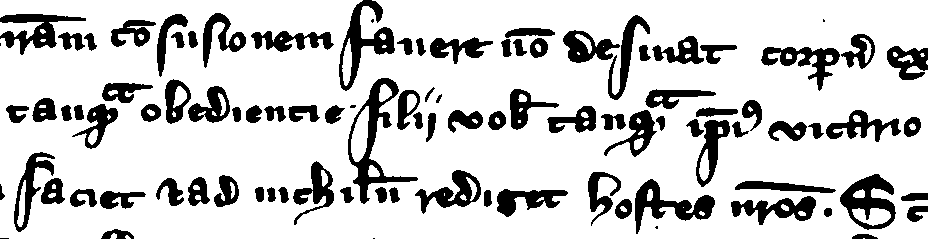 nr̄am cōfusionem fauere nō desinat corpꝝ ex
tanqᵃ obediencie filij vob̄ tanqᵃ ip̄iꝰ vicario
faciet ⁊ ad nichilū rediget hostes nr̄os. S c̄